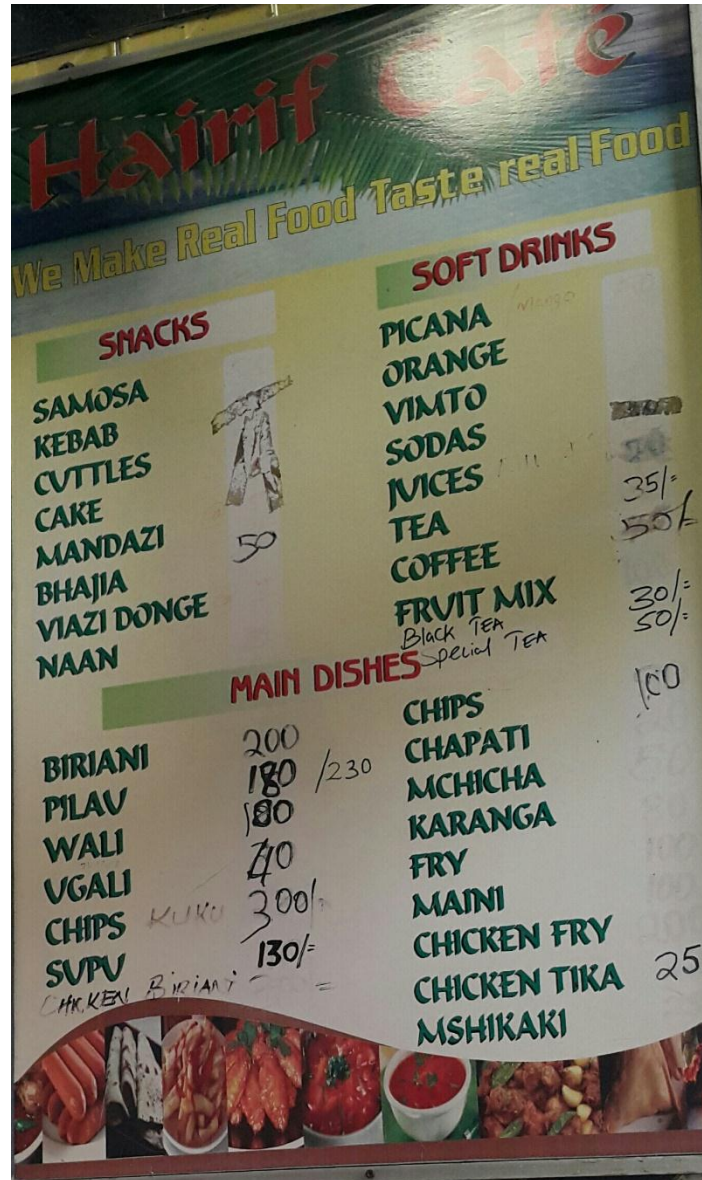 Hairif Café
We Make Real Food Taste real Food
SNACKS
SAMOSA
KEBAB
CUTTLES
CAKE
MANDAZI 50
BHAJIA
VIAZI DONGE
NAAN
SOFT DRINKS
PICANA mango
ORANGE
VIMTO
SODAS
JUICES
TEA 35/=
COFFEE 50/=
FRUIT MIX
Black TEA 30/=
Special TEA 50/=
MAIN DISHES
BIRIANI 200
PILAU 180 /230
WALI 100
UGALI 40
CHIPS KUKU 300/=
SUPU 130/=
CHICKEN BIRIANI =
CHIPS 100
CHAPATI
MCHICHA
KARANGA
FRY
MAINI
CHICKEN FRY
CHICKEN TIKA 25
MSHIKAKI